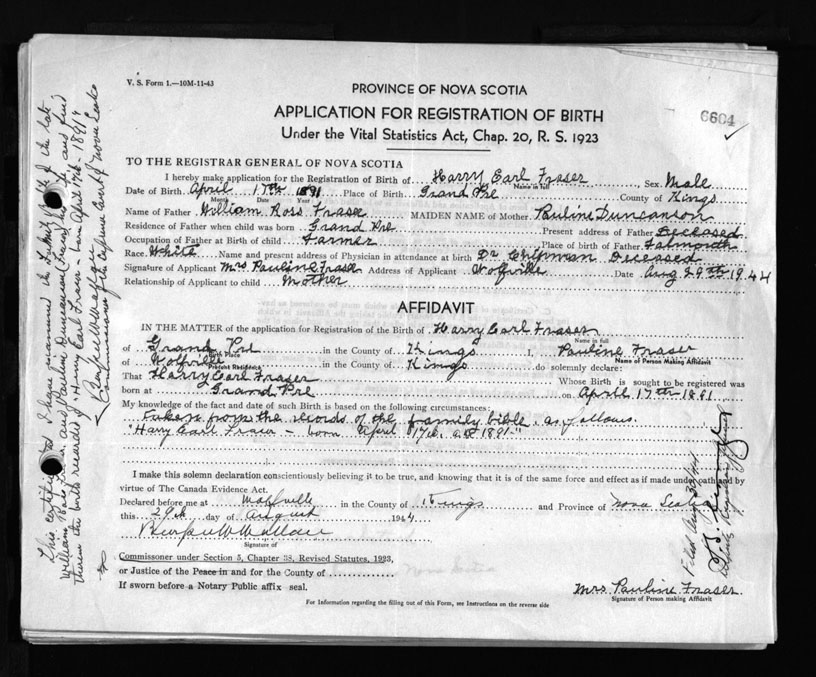 V. S. Form 1.—10M-11-43
PROVINCE OF NOVA SCOTIA
6604
APPLICATION FOR REGISTRATION OF BIRTH
Under the Vital Statistics Act, Chap. 20, R. S. 1923
TO THE REGISTRAR GENERAL OF NOVA SCOTIA
I hereby make application for the Registration of Birth of Harry Earl Fraser Sex Male
Name in full
Date of Birth April 17th 1891 Place of Birth Grand Pre County of Kings
Month Date Year
Name of Father William Ross Fraser MAIDEN NAME of Mother Pauline Duncanson
Residence of Father when child was born Grand Pre Present address of Father Deceased
Occupation of Father at Birth of child Farmer Place of Birth of Father Falmouth
Race White Name and present address of Physician in attendance at birth Dr Chipman Deceased
Signature of Applicant Mrs Pauline Fraser Address of Applicant Wolfville Date Aug 29th 1944
Relationship of Applicant to child Mother
AFFIDAVIT
IN THE MATTER of the application for Registration of the Birth of Harry Earl Fraser
Name in full
of Grand Pre in the County of Kings I, Pauline Fraser
Birth Place Name of Person Making Affidavit
of Wolfville in the County of Kings do solemnly declare:
Present Residence
That Harry Earl Fraser Whose Birth is sought to be registered was
born at Grand Pre on April 17th 1891
My knowledge of the fact and date of such Birth is based on the following circumstances:
Taken from the records of the family bible, as follows.
"Harry Earl Fraser - born April 17th, A.D. 1891."
I make this solemn declaration conscientiously believing it to be true, and knowing that it is of the same force and effect as if made under oath and by
virtue of The Canada Evidence Act.
Declared before me at Wolfville in the County of Kings and Province of Nova Scotia
this 29th day of August 1944
Burpee W Wallace
Signature of
Commissioner under Section 3, Chapter 38, Revised Statutes, 1923,
or Justice of the Peace in and for the County of
If sworn before a Notary Public affix seal.
Mrs Pauline Fraser
Signature of Person making Affidavit
For Information regarding the filling out of this Form, see Instructions on the reverse side
This certifies that I have examined the family bible of the late
William Ross Fraser, and Pauline Duncanson (Fraser) his wife and find
therein the birth recorded of "Harry Earl Fraser - born April 17th - 1891"
Burpee W Wallace
Commissioner of the Supreme Court of Nova Scotia
Filed Aug 30/944